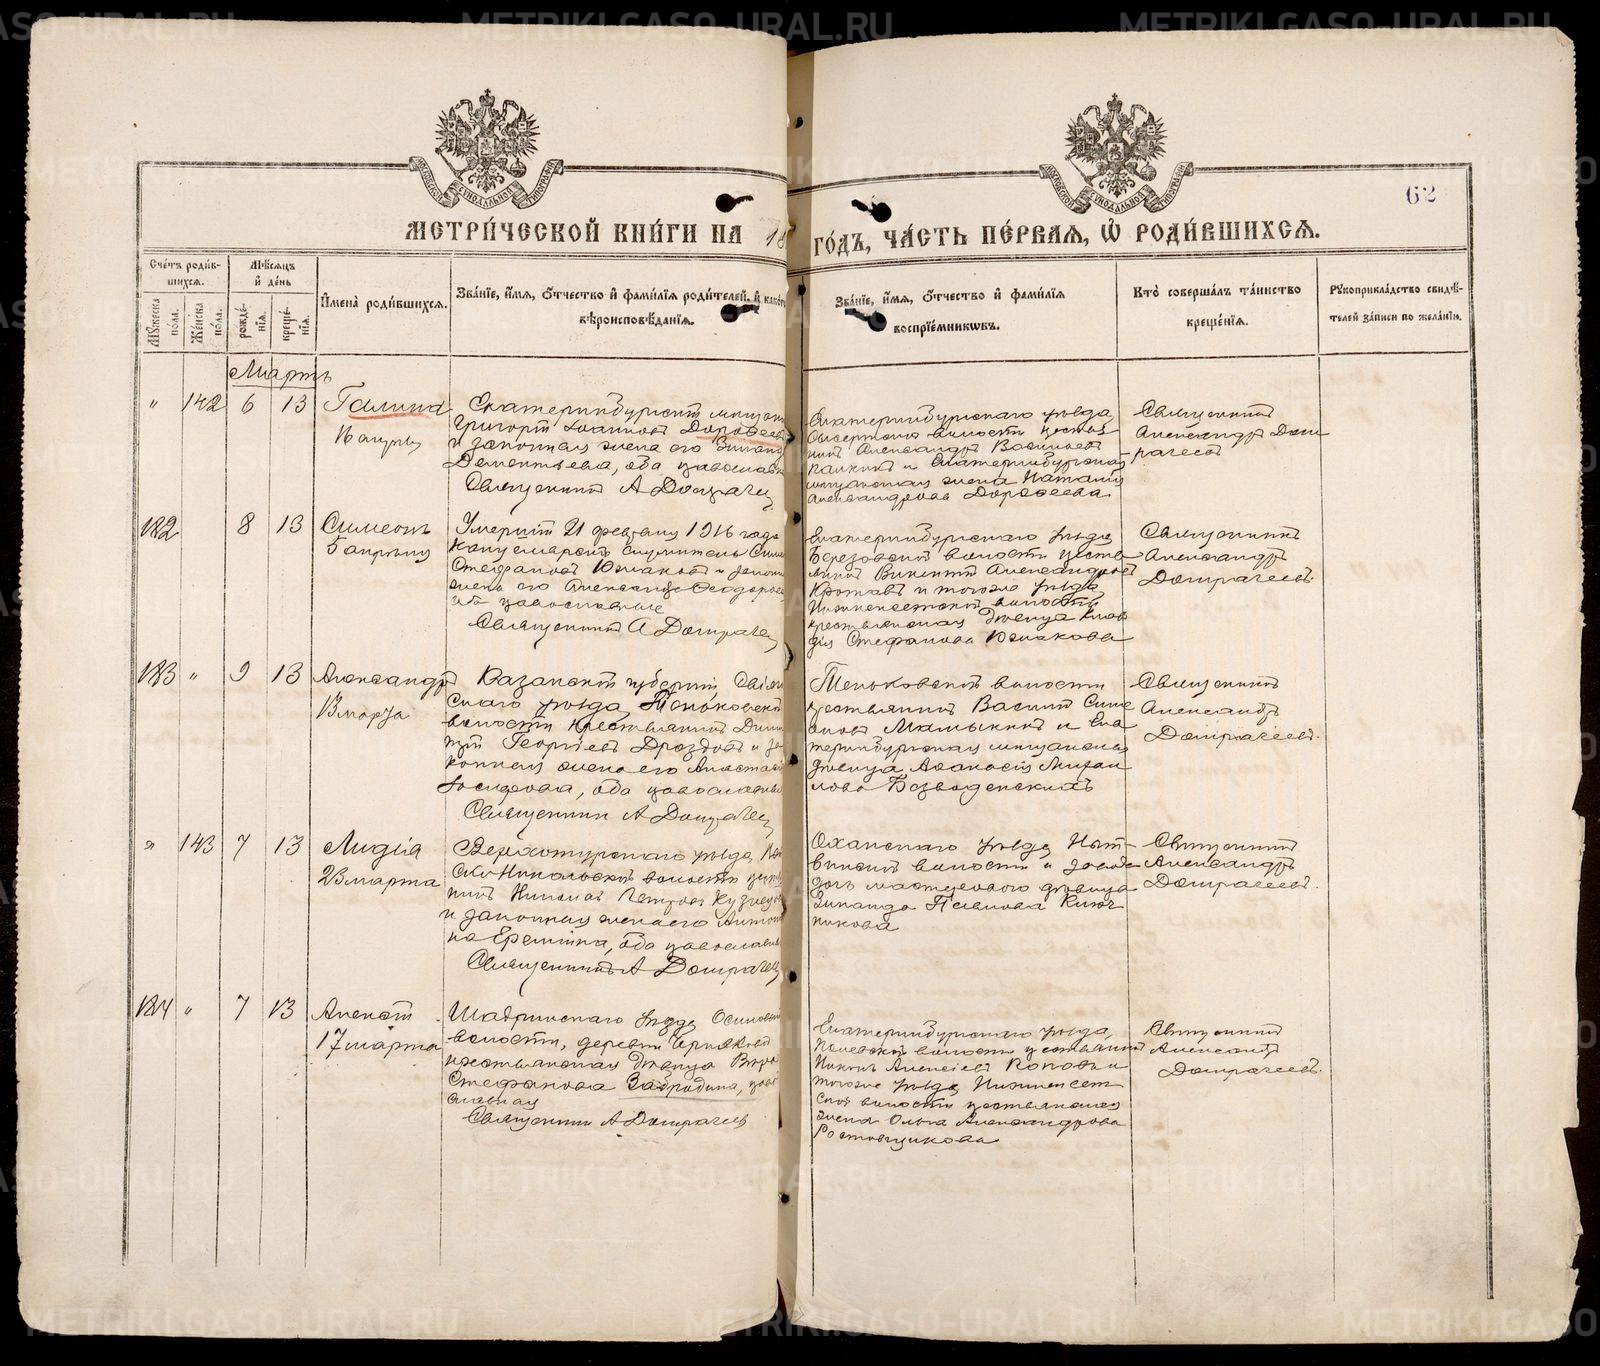 МЕТРИ́ЧЕСКОЙ КНИ́ГИ НА 19
ГО́ДЪ, ЧА́СТЬ ПЕ́РВАЯ, Ѽ РОДИ́ВШИХСѦ.
62
Сче́тъ роди́в-
шихсѧ.
Мꙋ́жеска по́ла.
Же́нска по́ла.
Мѣ́сѧцъ и҆ де́нь
рожде́-нїѧ.
креще́-нїѧ.
И҆мена̀ роди́вшихсѧ.
Зва́нїе, и҆́мѧ, о҆́тчество и҆ фами́лїѧ роди́телей, и҆ како́гѡ
вѣроисповѣ́данїѧ.
Зва́нїе, и҆́мѧ, о҆́тчество и҆ фами́лїѧ
воспрїе́мникѡвъ.
Кто̀ соверша́лъ та́инство
креще́нїѧ.
Рꙋкоприкла́дство свидѣ́-
телей за́писи по жела́нїю.
Мартъ
" 142 6 13 Галина
Екатеринбургскій мѣщан
Григорій Іоанновъ Дороѳеевъ
и законная жена его Зинаида
Дементьева, оба православн
Священникъ А Домрачев
Екатеринбургскаго уѣзда
Сысертской волости крестья
нинъ Александръ Васильевъ
и Екатеринбургская
мѣщанская жена Наталія
Александрова Дороѳеева
Священникъ
Александръ Дом
рачевъ
182 8 13 Симеонъ
5 апрѣля
Умершій 21 февраля 1916 года
Канцелярскій служитель Симе
Стефановъ Южаковъ и законн
жена его Александра Ѳеодорова
оба православные
Священникъ А Домрачев
Екатеринбургскаго уѣзда
Березовской волости крестья
нинъ Викентій Александровъ
и того же уѣзда
Нижнеисетской волости
крестьянская дѣвица Клав
дія Стефанова Южакова
Священникъ
Александръ
Домрачевъ.
183 " 9 13 Александръ
13 марта
Казанской губерніи, Свіяж
скаго уѣзда, Теньковской
волости крестьянинъ Дими
трій Георгіевъ Дроздовъ и за
конная жена его Анастасія
Іосифова, оба православные
Священникъ А Домрачев
Теньковской волости
крестьянинъ Василій Симе
оновъ Мамыкинъ и Ека
теринбургская мѣщанская
дѣвица Аѳанасія Михаи
лова
Священникъ
Александръ
Домрачевъ.
" 143 7 13 Лидія
23 марта
Верхотурскаго уѣзда,
Никольской волости крестья
нинъ Николай Петровъ Кузнецов
и законная жена его Антони
на Еремѣева, оба православн
Священникъ А Домрачев
Оханскаго уѣзда, Ныт-
винской волости и завода
дочь мастероваго дѣвица
Зинаида Павлова Ключ
никова
Священникъ
Александръ
Домрачевъ.
184 " 7 13 Алексій
17 марта
Шадринскаго уѣзда Осиновск
волости, деревни
крестьянская дѣвица
Стефанова Забродина, право
славная
Священникъ А Домрачевъ
Екатеринбургскаго уѣзда,
Полевской волости крестьянинъ
Никонъ Алексіевъ Коповъ и
того же уѣзда Нижнеисет
ской волости крестьянская
жена Ольга Александрова
Ростовщикова
Священникъ
Александръ
Домрачевъ.